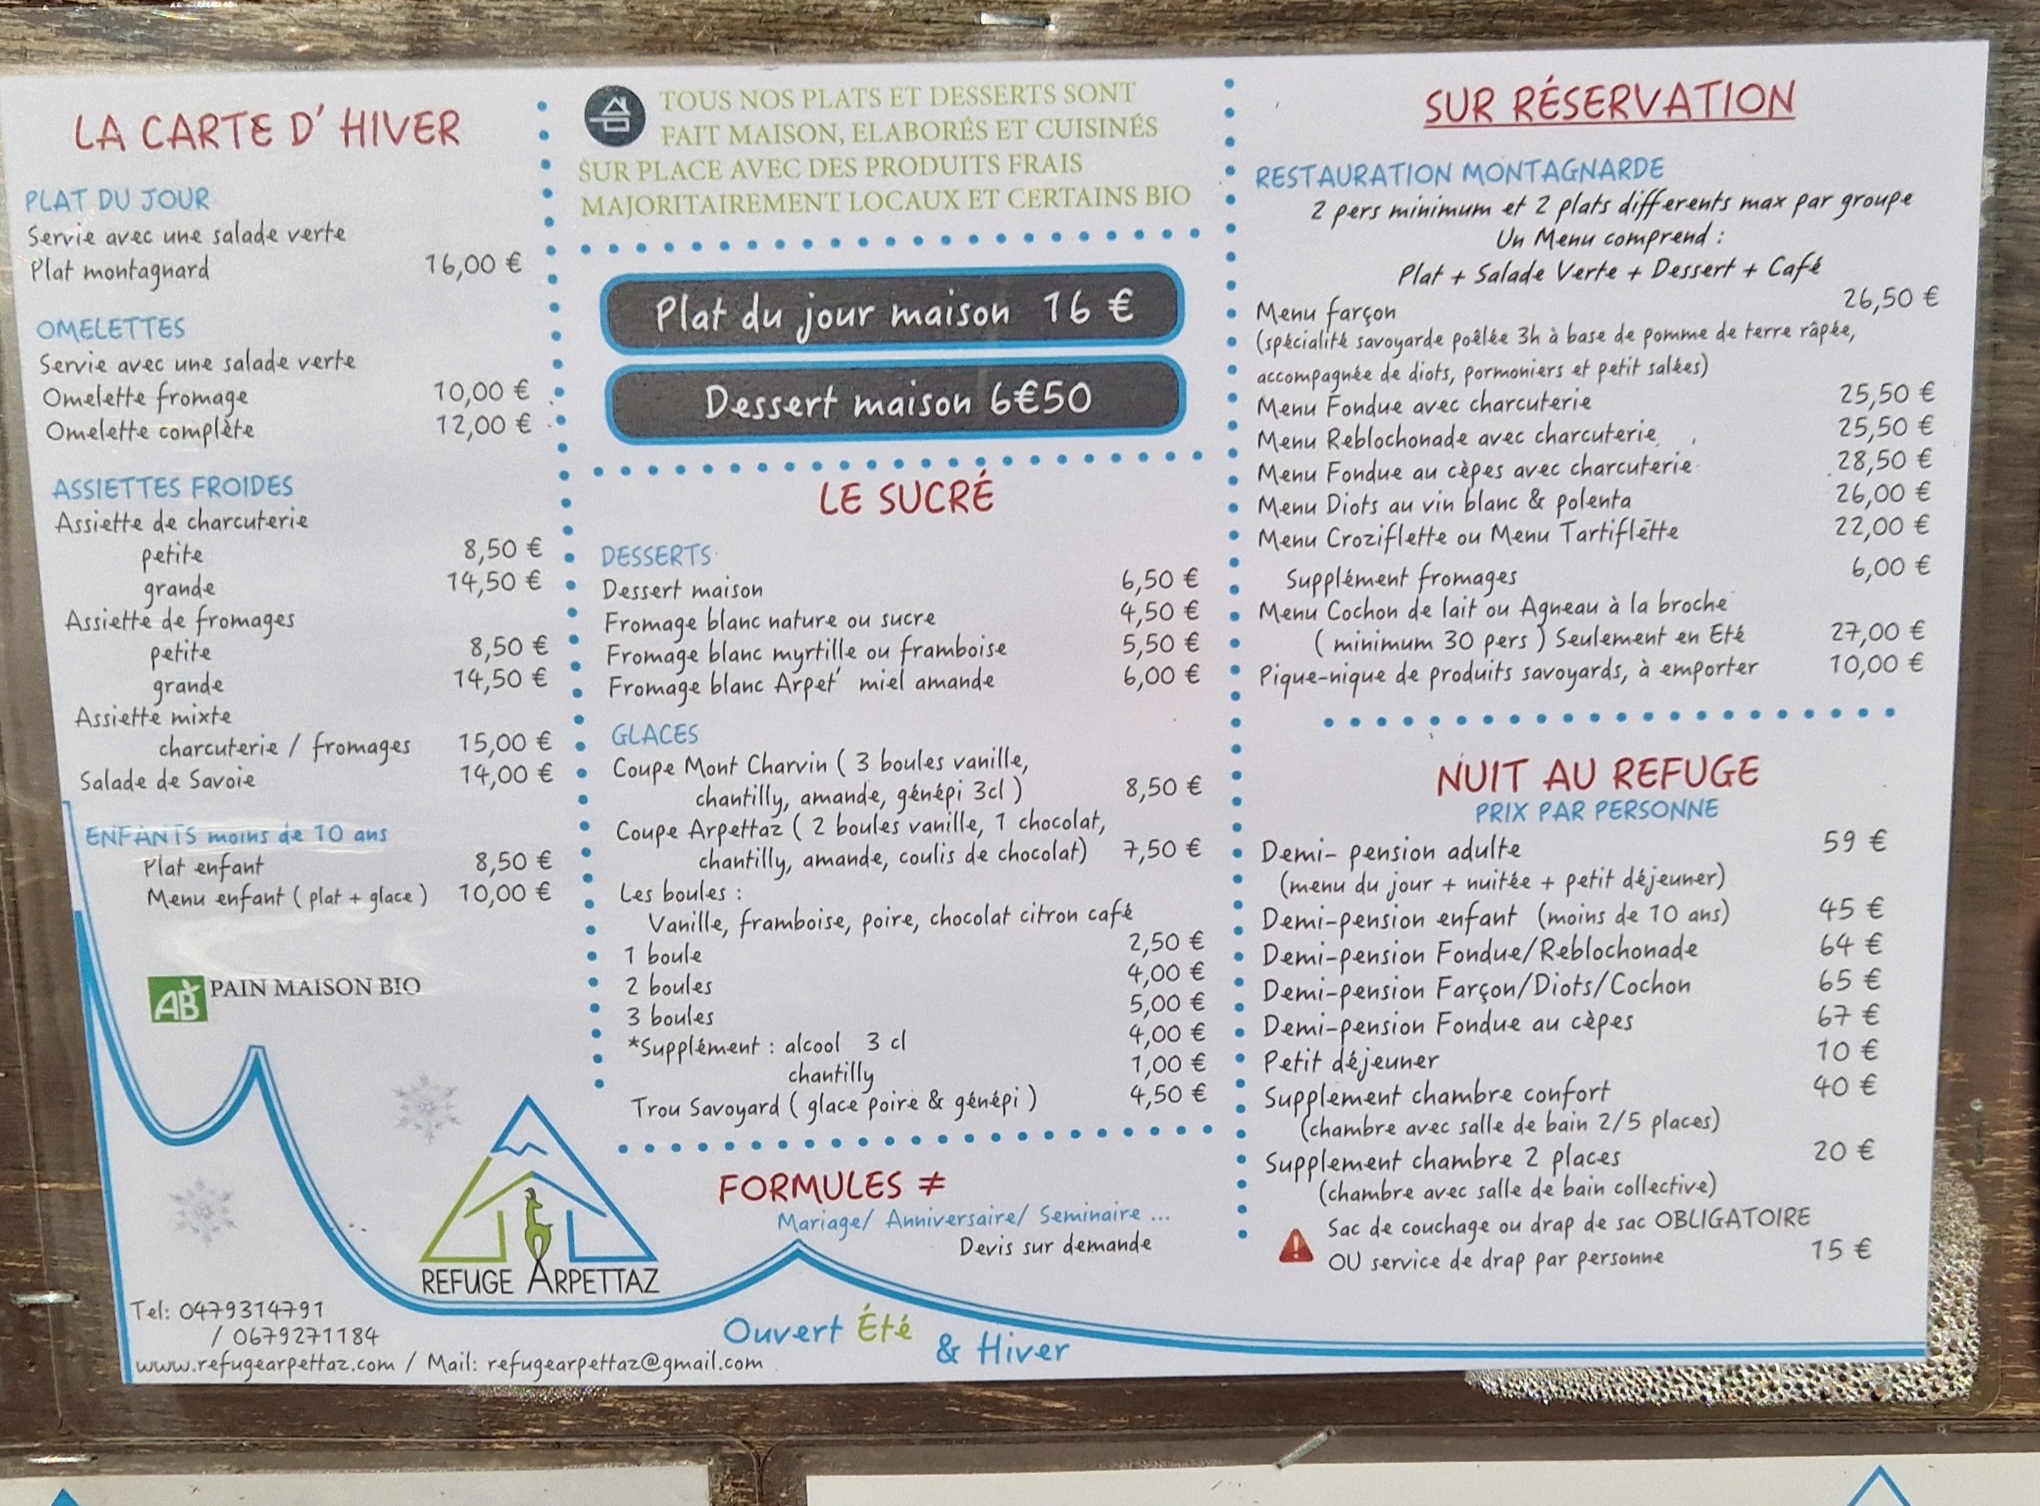 LA CARTE D' HIVER
PLAT DU JOUR
Servie avec une salade verte
Plat montagnard 16,00 €
OMELETTES
Servie avec une salade verte
Omelette fromage 10,00 €
Omelette complète 12,00 €
ASSIETTES FROIDES
Assiette de charcuterie
petite 8,50 €
grande 14,50 €
Assiette de fromages
petite 8,50 €
grande 14,50 €
Assiette mixte
charcuterie / fromages 15,00 €
Salade de Savoie 14,00 €
ENFANTS moins de 10 ans
Plat enfant 8,50 €
Menu enfant ( plat + glace ) 10,00 €
AB PAIN MAISON BIO
REFUGE ARPETTAZ
Tel: 0479314791
/ 0679271184
www.refugearpettaz.com / Mail: refugearpettaz@gmail.com
TOUS NOS PLATS ET DESSERTS SONT
FAIT MAISON, ELABORÉS ET CUISINÉS
SUR PLACE AVEC DES PRODUITS FRAIS
MAJORITAIREMENT LOCAUX ET CERTAINS BIO
Plat du jour maison 16 €
Dessert maison 6€50
LE SUCRÉ
DESSERTS
Dessert maison 6,50 €
Fromage blanc nature ou sucre 4,50 €
Fromage blanc myrtille ou framboise 5,50 €
Fromage blanc Arpet' miel amande 6,00 €
GLACES
Coupe Mont Charvin ( 3 boules vanille,
chantilly, amande, génépi 3cl ) 8,50 €
Coupe Arpettaz ( 2 boules vanille, 1 chocolat,
chantilly, amande, coulis de chocolat) 7,50 €
Les boules :
Vanille, framboise, poire, chocolat citron café
1 boule 2,50 €
2 boules 4,00 €
3 boules 5,00 €
*Supplément : alcool 3 cl 4,00 €
chantilly 1,00 €
Trou Savoyard ( glace poire & génépi ) 4,50 €
FORMULES ≠
Mariage/ Anniversaire/ Seminaire ...
Devis sur demande
Ouvert Été & Hiver
SUR RÉSERVATION
RESTAURATION MONTAGNARDE
2 pers minimum et 2 plats differents max par groupe
Un Menu comprend :
Plat + Salade Verte + Dessert + Café
Menu farçon 26,50 €
(spécialité savoyarde poêlée 3h à base de pomme de terre râpée,
accompagnée de diots, pormoniers et petit salées)
Menu Fondue avec charcuterie 25,50 €
Menu Reblochonade avec charcuterie 25,50 €
Menu Fondue au cèpes avec charcuterie 28,50 €
Menu Diots au vin blanc & polenta 26,00 €
Menu Croziflette ou Menu Tartiflette 22,00 €
Supplément fromages 6,00 €
Menu Cochon de lait ou Agneau à la broche
( minimum 30 pers ) Seulement en Eté 27,00 €
Pique-nique de produits savoyards, à emporter 10,00 €
NUIT AU REFUGE
PRIX PAR PERSONNE
Demi- pension adulte 59 €
(menu du jour + nuitée + petit déjeuner)
Demi-pension enfant (moins de 10 ans) 45 €
Demi-pension Fondue/Reblochonade 64 €
Demi-pension Farçon/Diots/Cochon 65 €
Demi-pension Fondue au cèpes 67 €
Petit déjeuner 10 €
Supplement chambre confort 40 €
(chambre avec salle de bain 2/5 places)
Supplement chambre 2 places 20 €
(chambre avec salle de bain collective)
Sac de couchage ou drap de sac OBLIGATOIRE
OU service de drap par personne 15 €